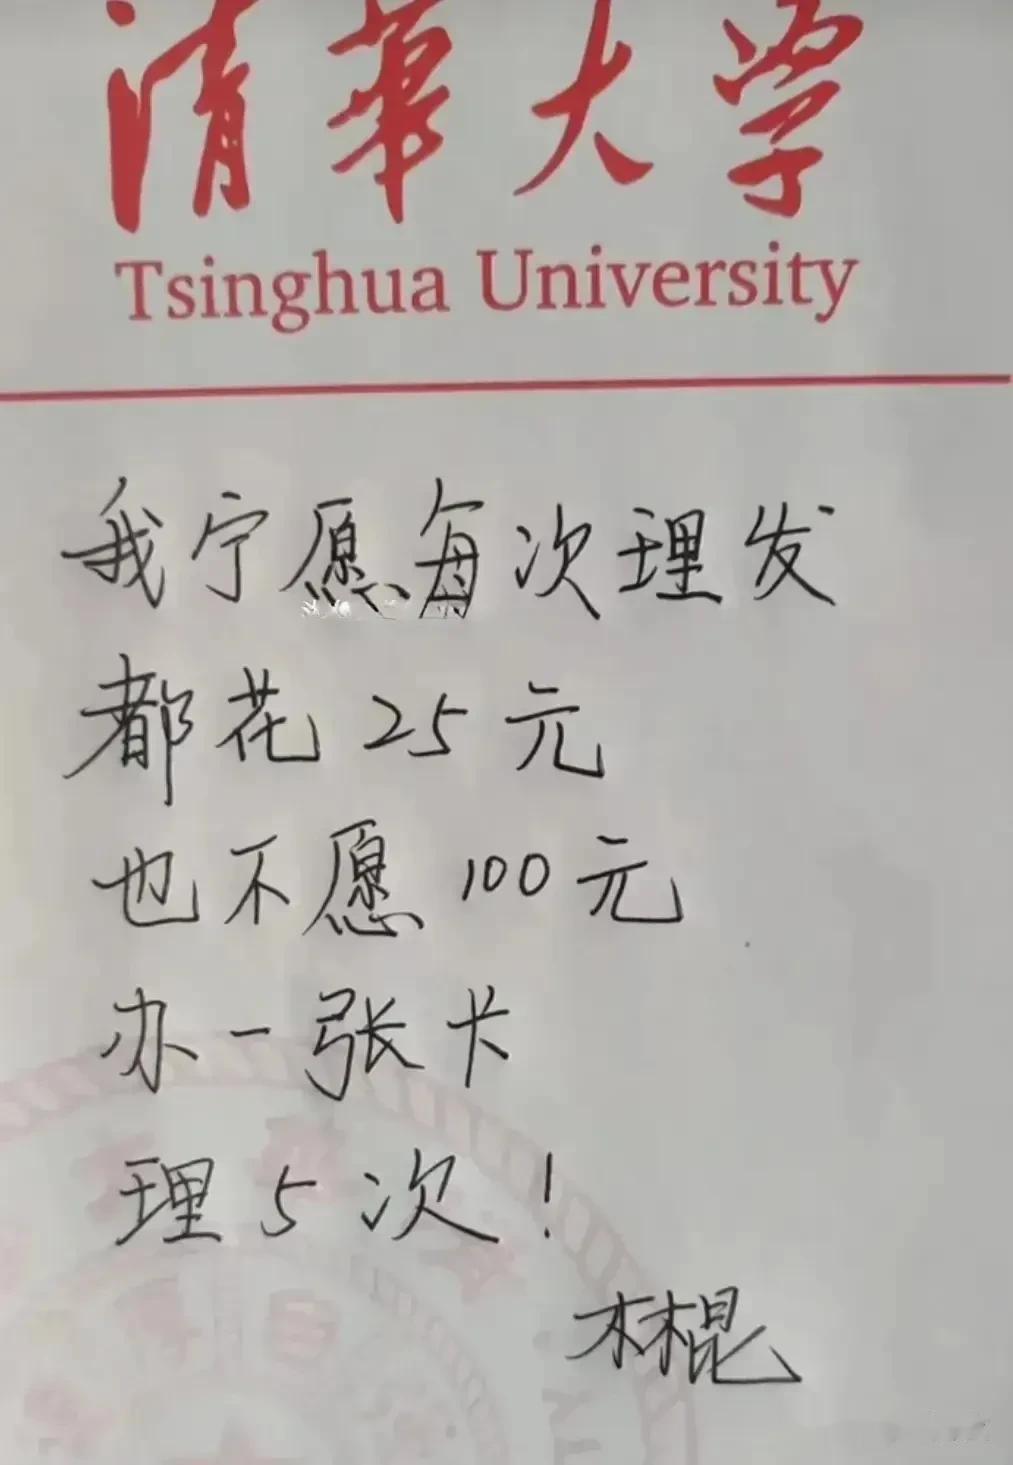 清華大学
Tsinghua University
我宁愿每次理发
都花25元
也不愿100元
办一张卡
理5次!
林棍